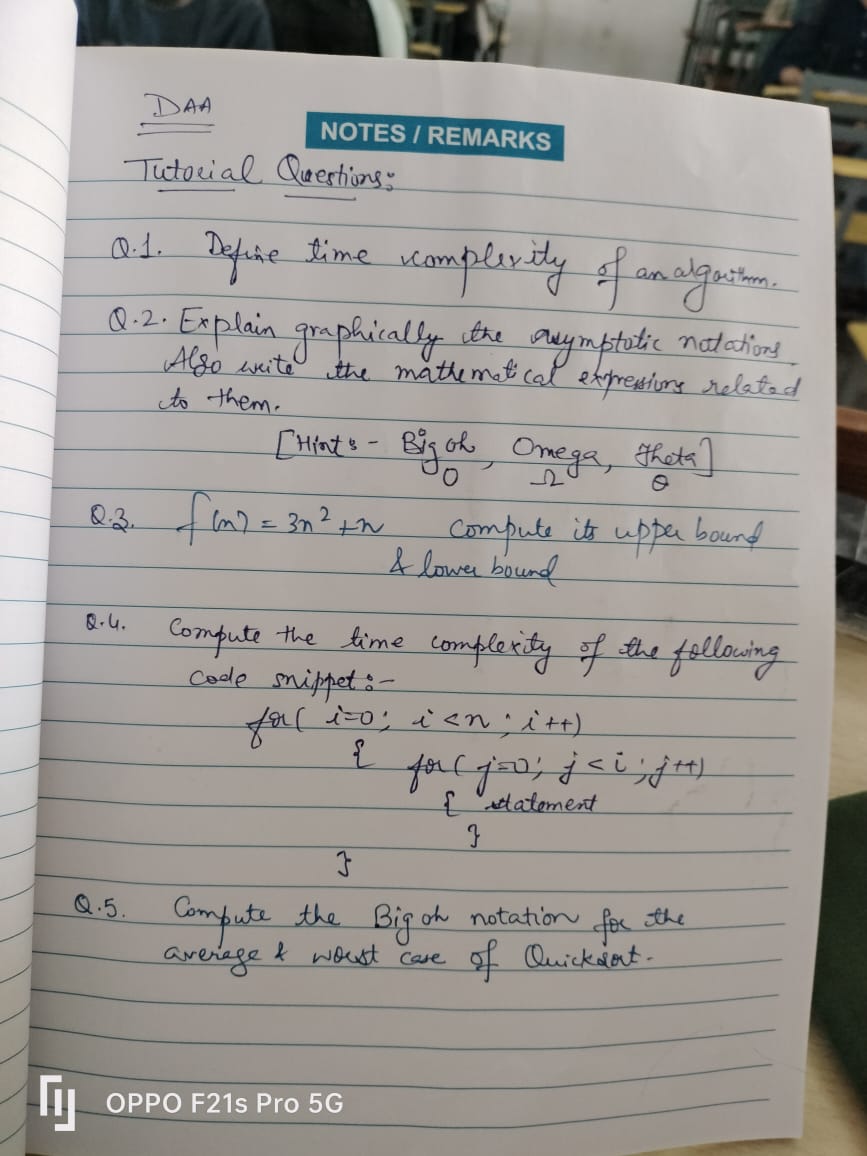 DAA
NOTES / REMARKS
Tutorial Questions:
Q.1. Define time complexity of an algorithm.
Q.2. Explain graphically the asymptotic notations
Also write the mathematical expressions related
to them.
[Hint:- Big oh, Omega, Theta]
O Ω θ
Q.3. f(n) = 3n² + n Compute its upper bound
& lower bound
Q.4. Compute the time complexity of the following
code snippet :-
for( i=0; i<n; i++)
{ for( j=0; j<i; j++)
{ statement
}
}
Q.5. Compute the Big oh notation for the
average & worst case of Quicksort.
OPPO F21s Pro 5G